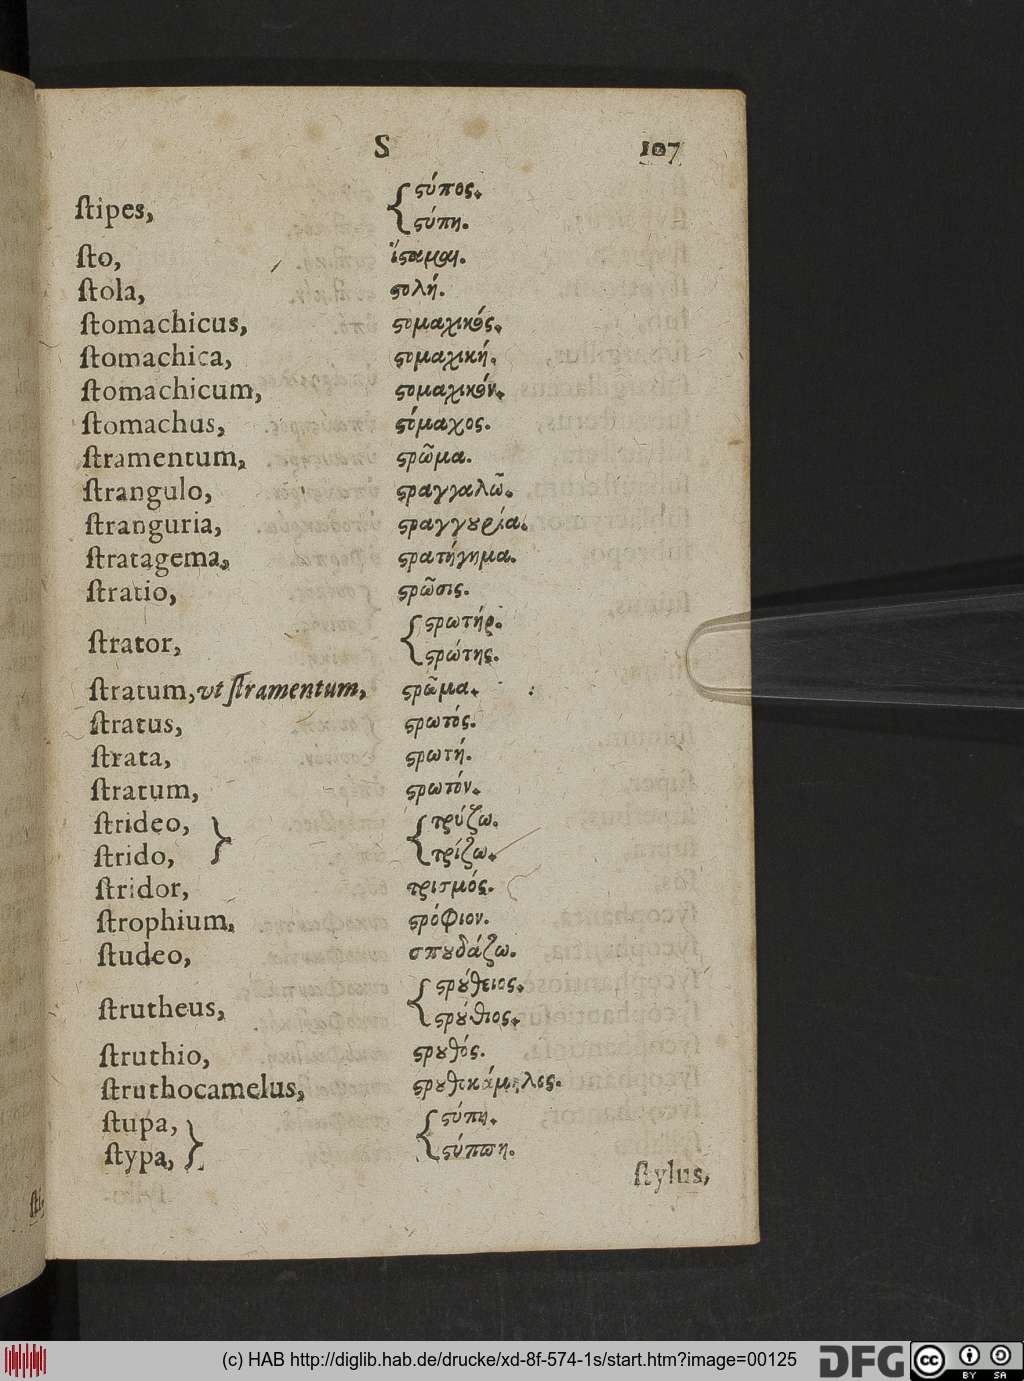 S 107
ſtipes, { ϛύπος.
ϛύπη.
ſto, ἵϛαμαι.
ſtola, ϛολή.
ſtomachicus, ϛομαχικός.
ſtomachica, ϛομαχική.
ſtomachicum, ϛομαχικόν.
ſtomachus, ϛόμαχος.
ſtramentum, ϛρῶμα.
ſtrangulo, ϛραγγαλῶ.
ſtranguria, ϛραγγȣρία.
ſtratagema, ϛρατήγημα.
ſtratio, ϛρῶσις.
ſtrator, { ϛρωτήρ.
ϛρώτης.
ſtratum, vt ſtramentum, ϛρῶμα.
ſtratus, ϛρωτός.
ſtrata, ϛρωτή.
ſtratum, ϛρωτόν.
ſtrideo, } { τρύζω.
ſtrido, τρίζω.
ſtridor, τρισμός.
ſtrophium, ϛρόφιον.
ſtudeo, σπȣδάζω.
ſtrutheus, { ϛρȣ́θειος.
ϛρȣ́θιος.
ſtruthio, ϛρȣθός.
ſtruthocamelus, ϛρȣθοκάμηλος.
ſtupa, } { ϛύπη.
ſtypa, ϛύππη.
ſtylus,
(c) HAB http://diglib.hab.de/drucke/xd-8f-574-1s/start.htm?image=00125
DFG
cc BY SA